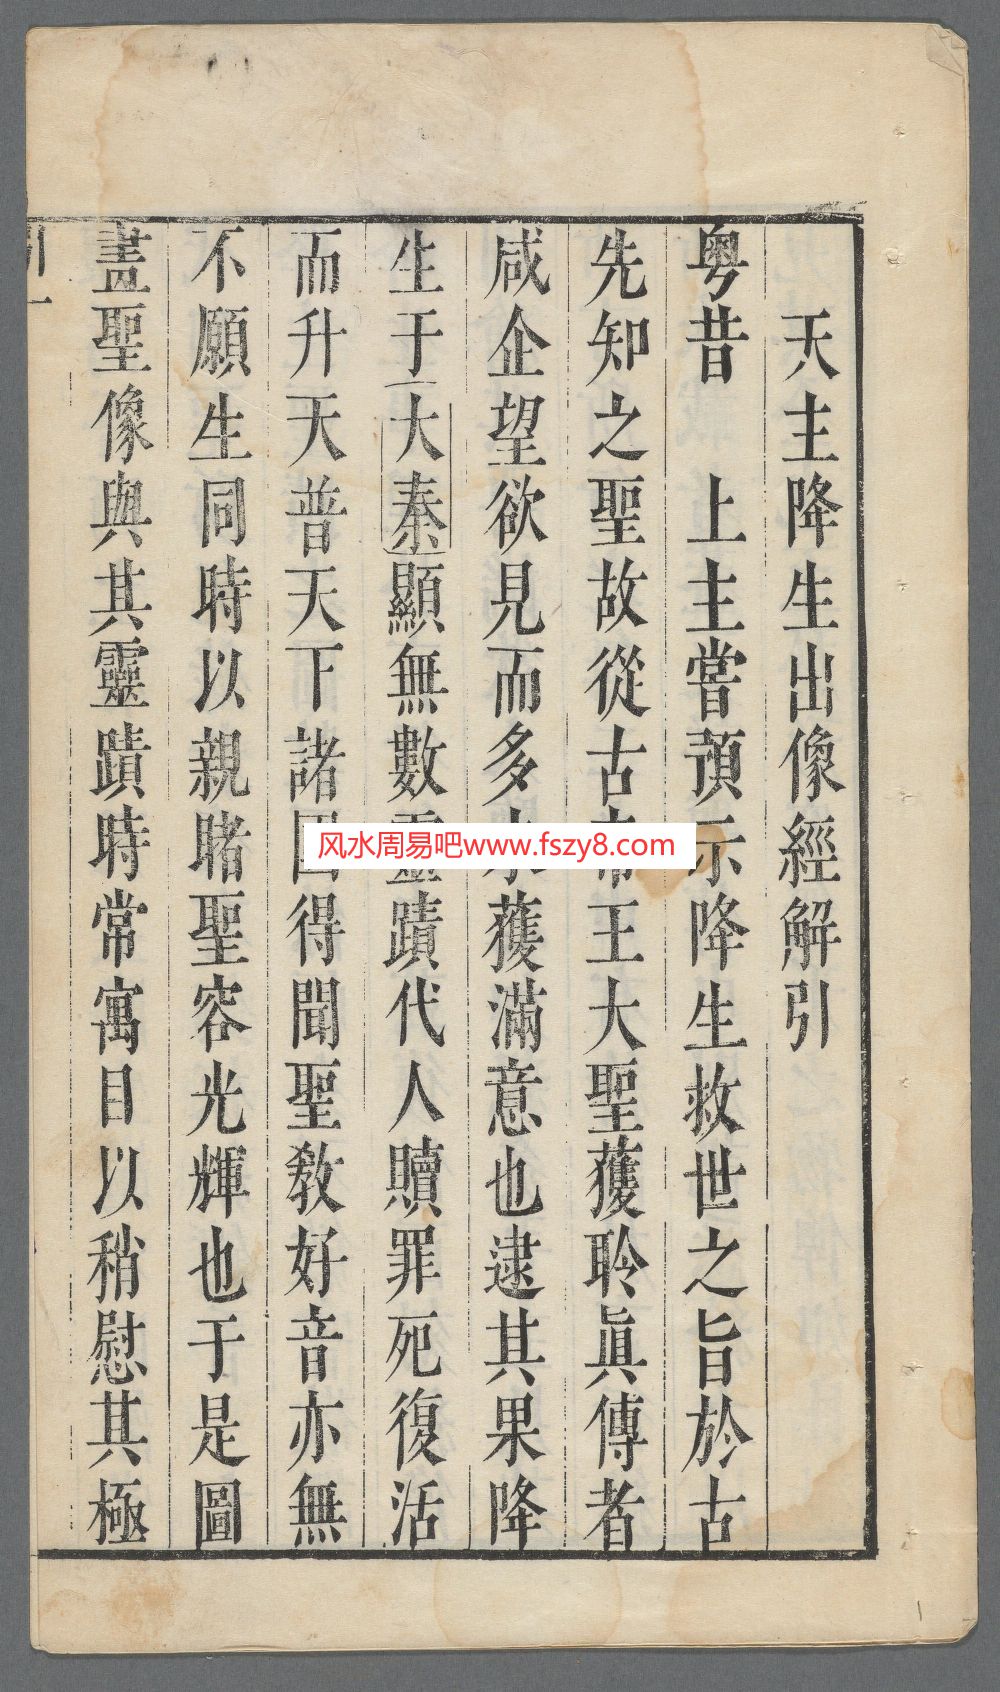 天主降生出像經解引
粤昔　上主嘗預示降生救世之旨於古
先知之聖故從古帝王大聖獲聆眞傳者
咸企望欲見而多獲滿意也逮其果降
生于大秦顯無數靈蹟代人贖罪死復活
而升天普天下諸國得聞聖教好音亦無
不願生同時以親睹聖容光輝也于是圖
畫聖像與其靈蹟時常寓目以稍慰其極
引 一
风水周易吧www.fszy8.com